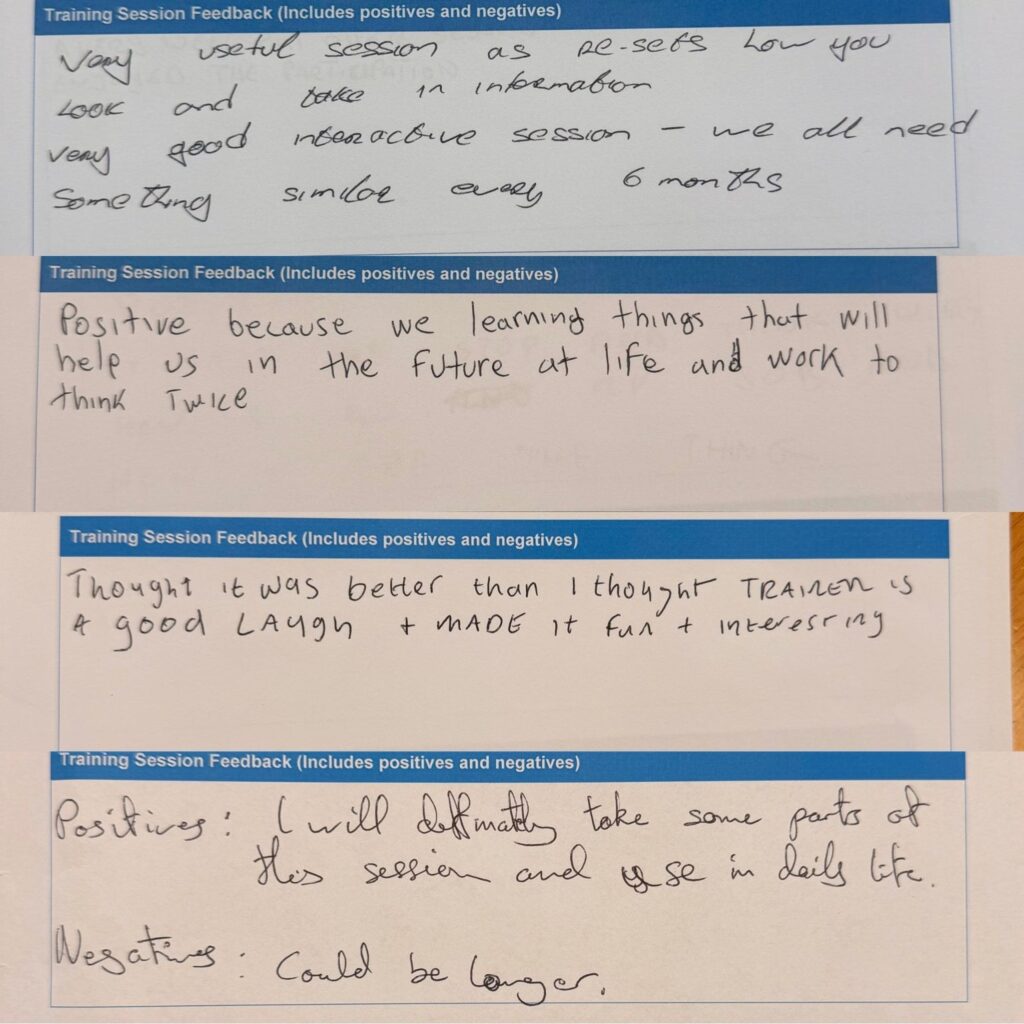 Training Session Feedback (Includes positives and negatives)
Very useful session as re-sets how you
look and take in information
very good interactive session - we all need
Something similar every 6 months
Training Session Feedback (Includes positives and negatives)
Positive because we learning things that will
help us in the future at life and work to
think Twice
Training Session Feedback (Includes positives and negatives)
Thought it was better than I thought TRAINER is
A good LAugh + MADE it fun + interesting
Training Session Feedback (Includes positives and negatives)
Positives: I will deffinattly take some parts of
this session and use in daily life.
Negatives: Could be longer.